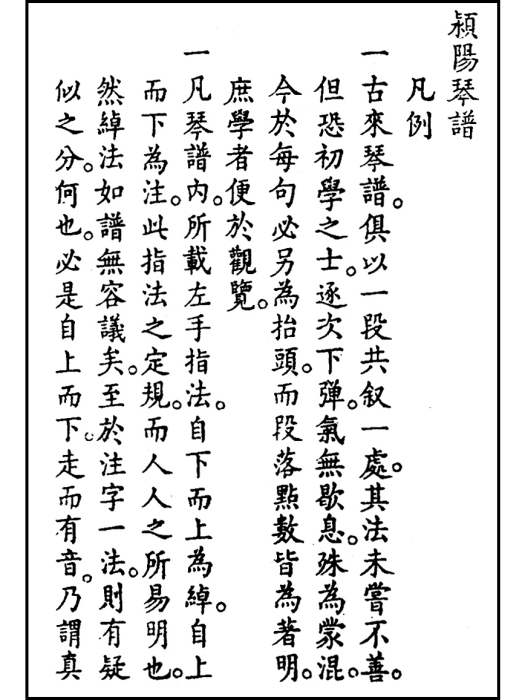 潁陽琴譜
凡例
一古來琴譜。俱以一段共叙一處。其法未嘗不善。
但恐初學之士。逐次下彈。氣無歇息。殊為蒙混。
今於每句必另為抬頭。而段落點數皆為著明。
庶學者便於觀覽。
一凡琴譜內。所載左手指法。自下而上為綽。自上
而下為注。此指法之定規。而人人之所易明也。
然綽法如譜無容議矣。至於注字一法。則有疑
似之分。何也。必是自上而下。走而有音。乃謂真